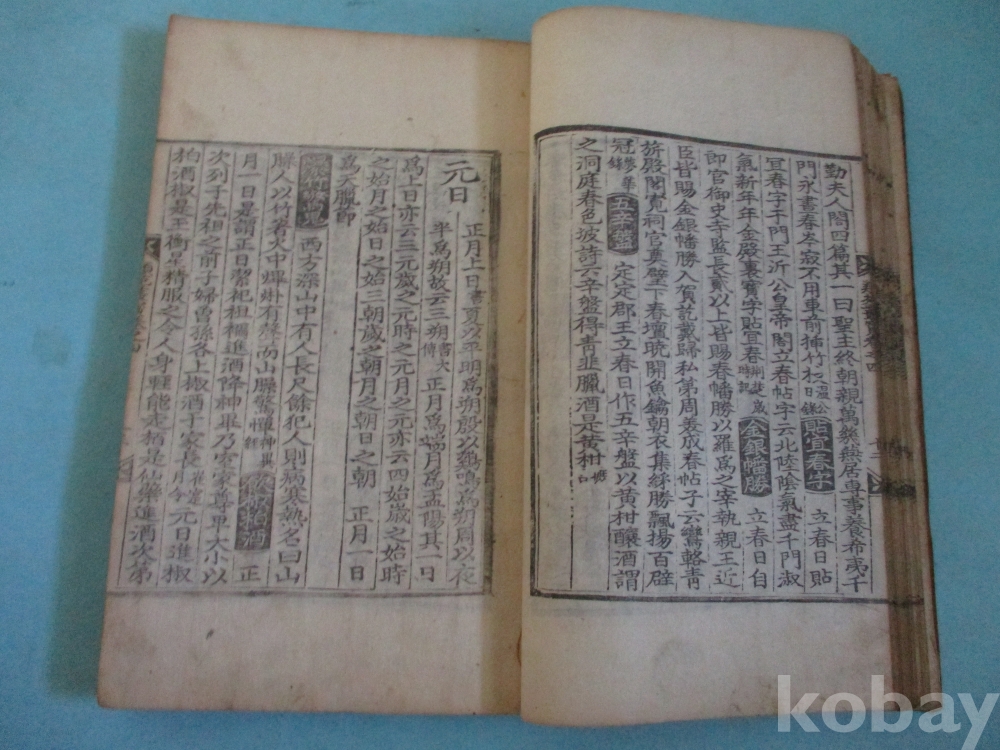 勤夫人閤四篇其一曰聖主終朝親萬幾燕居專事養和夷千
門永晝春岑寂不用車前插竹枝 貼宜春字 立春日貼
宜春字于門王沂公皇帝閤立春帖字云北陸陰氣盡千門淑
氣新年年金殿裏寶字貼宜春 金銀幡勝 立春日自
郎官御史寺監長貳以上皆賜春幡勝以羅爲之宰執親王近
臣皆賜金銀幡勝入賀訖戴歸私第周美成春帖子云鸞輅青
旂殿閣寬祠官奠壁下春壇曉開魚鑰朝衣集綵勝飄揚百辟
冠 五辛盤 定定郡王立春日作五辛盤以黃柑釀酒謂
之洞庭春色坡詩云辛盤得青韭臘酒是黃柑
元日 正月上日 夏以平明爲朔殷以鷄鳴爲朔周以夜
半爲朔故云三朔 書大傳 正月爲端月爲孟陽其一日
爲上日亦云三元歲之元時之元月之元亦云四始歲之始時
之始月之始日之始三朝歲之朝月之朝日之朝 正月一日
爲天臘節
西方深山中有人長尺餘犯人則病寒熱名曰山
臊人以竹著火中 有聲而山臊驚憚 神異經 正
月一日是謂正日潔祀祖禰進酒降神畢乃室家尊卑大小以
次列于先祖之前子婦曾孫各上椒酒于家長 元日進椒
柏酒椒是玉衡星精服之令人身輕能走栢是仙藥進酒次第
kobay